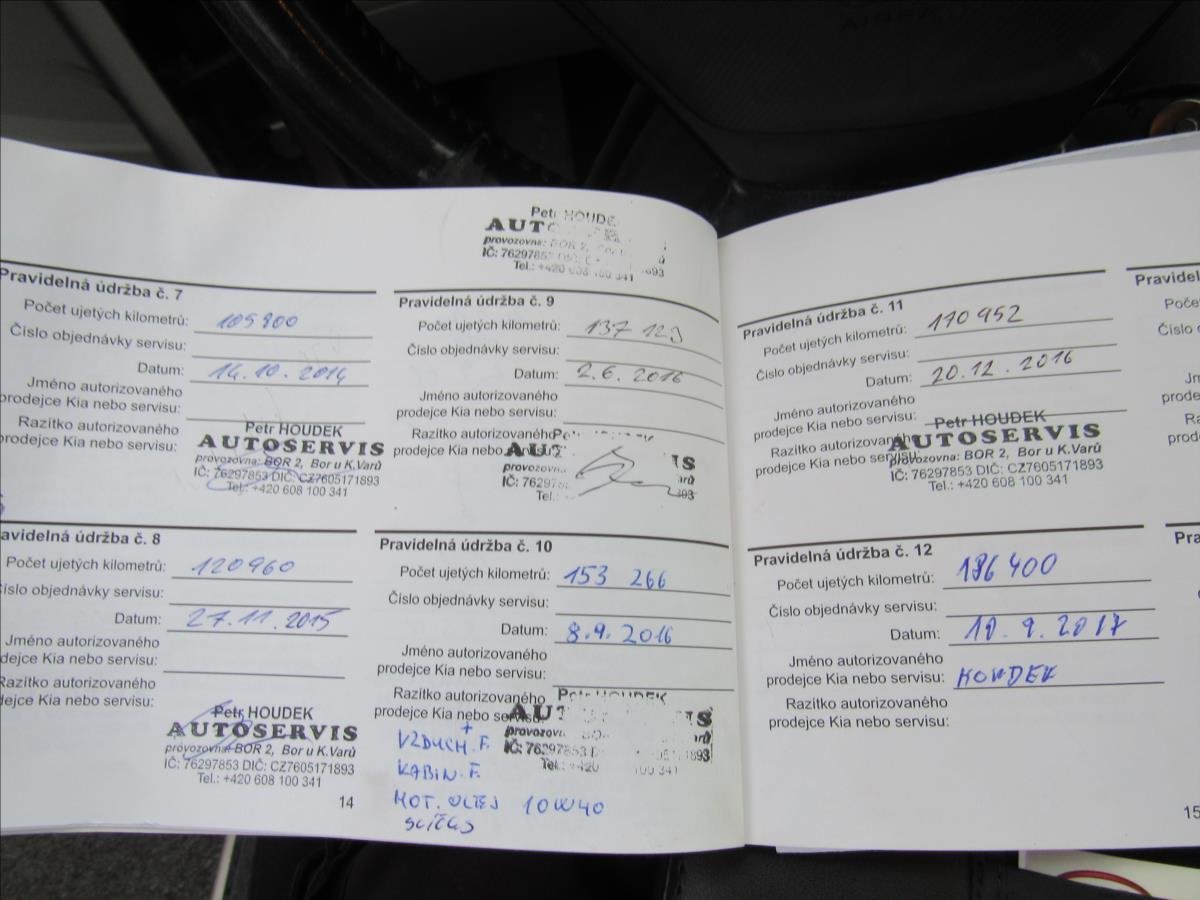 AIRBA
Petr HOUDE
AUTO
provozovna: BOR 2, Bor u
IČ: 76297853
Tel.: +420 608 100 341
Pravidelná údržba č. 7
Počet ujetých kilometrů: 105800
Číslo objednávky servisu:
Datum: 14.10.2014
Jméno autorizovaného
prodejce Kia nebo servisu:
Razítko autorizovaného
prodejce Kia nebo servisu:
Petr HOUDEK
AUTOSERVIS
provozovna: BOR 2, Bor u K.Varů
IČ: 76297853 DIČ: CZ7605171893
Tel.: +420 608 100 341
avidelná údržba č. 8
Počet ujetých kilometrů: 120960
Číslo objednávky servisu:
Datum: 27.11.2015
Jméno autorizovaného
dejce Kia nebo servisu:
Razítko autorizovaného
dejce Kia nebo servisu:
Petr HOUDEK
AUTOSERVIS
provozovna: BOR 2, Bor u K.Varů
IČ: 76297853 DIČ: CZ7605171893
Tel.: +420 608 100 341
14
Pravidelná údržba č. 9
Počet ujetých kilometrů: 137 123
Číslo objednávky servisu:
Datum: 2.6.2016
Jméno autorizovaného
prodejce Kia nebo servisu:
Razítko autorizovaného
prodejce Kia nebo servisu:
Pravidelná údržba č. 10
Počet ujetých kilometrů: 153 266
Číslo objednávky servisu:
Datum: 8.9.2016
Jméno autorizovaného
prodejce Kia nebo servisu:
Razítko autorizovaného
prodejce Kia nebo servisu:
Petr HOUDEK
IČ: 76297853
+
VZDUCH.F.
KABIN.F.
MOT. OLEJ 10W40
Pravidelná údržba č. 11
Počet ujetých kilometrů: 170 952
Číslo objednávky servisu:
Datum: 20.12.2016
Jméno autorizovaného
prodejce Kia nebo servisu:
Razítko autorizovaného
prodejce Kia nebo servisu:
Petr HOUDEK
AUTOSERVIS
provozovna: BOR 2, Bor u K.Varů
IČ: 76297853 DIČ: CZ7605171893
Tel.: +420 608 100 341
Pravidelná údržba č. 12
Počet ujetých kilometrů: 186400
Číslo objednávky servisu:
Datum: 10.9.2017
Jméno autorizovaného
prodejce Kia nebo servisu: HOUDEK
Razítko autorizovaného
prodejce Kia nebo servisu:
15